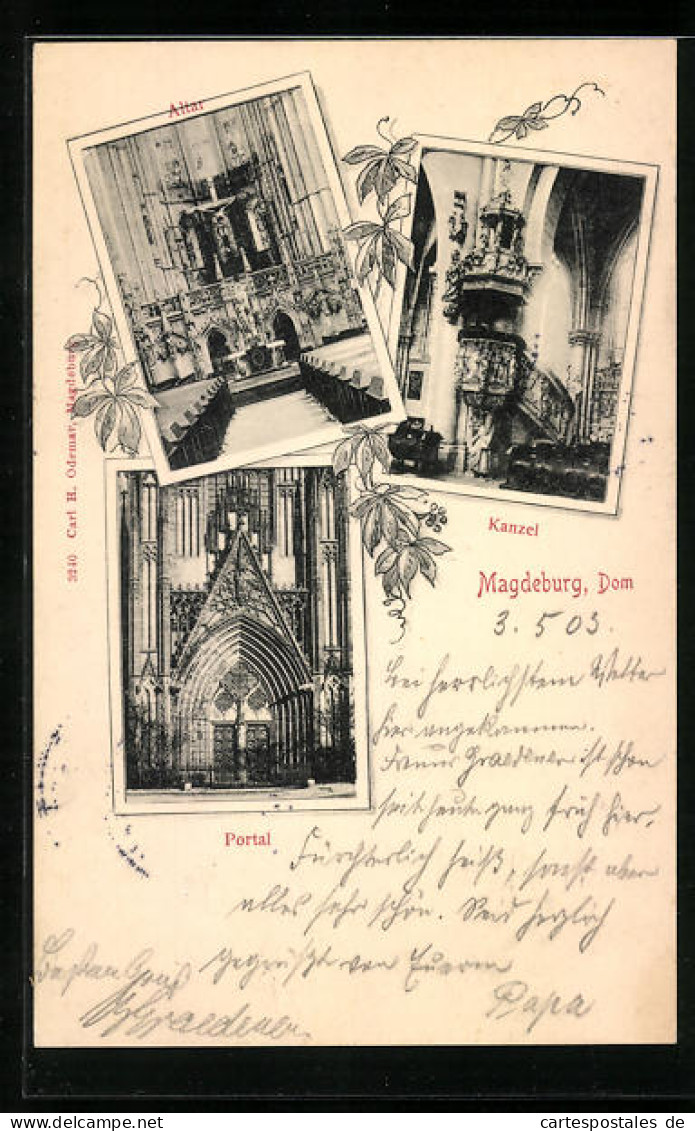 Altar
3240 Carl H. Odemar, Magdeburg.
Kanzel
Magdeburg, Dom
3. 5 03.
Bei herrlichstem Wetter
hier angekommen.
Graedener ist schon
seit heute ganz früh hier.
Fürchterlich heiß, sonst aber
alles sehr schön. Seid herzlich
gegrüßt von Euerm
Papa
Portal
Besten Gruß
Graedener.
cartespostales.de